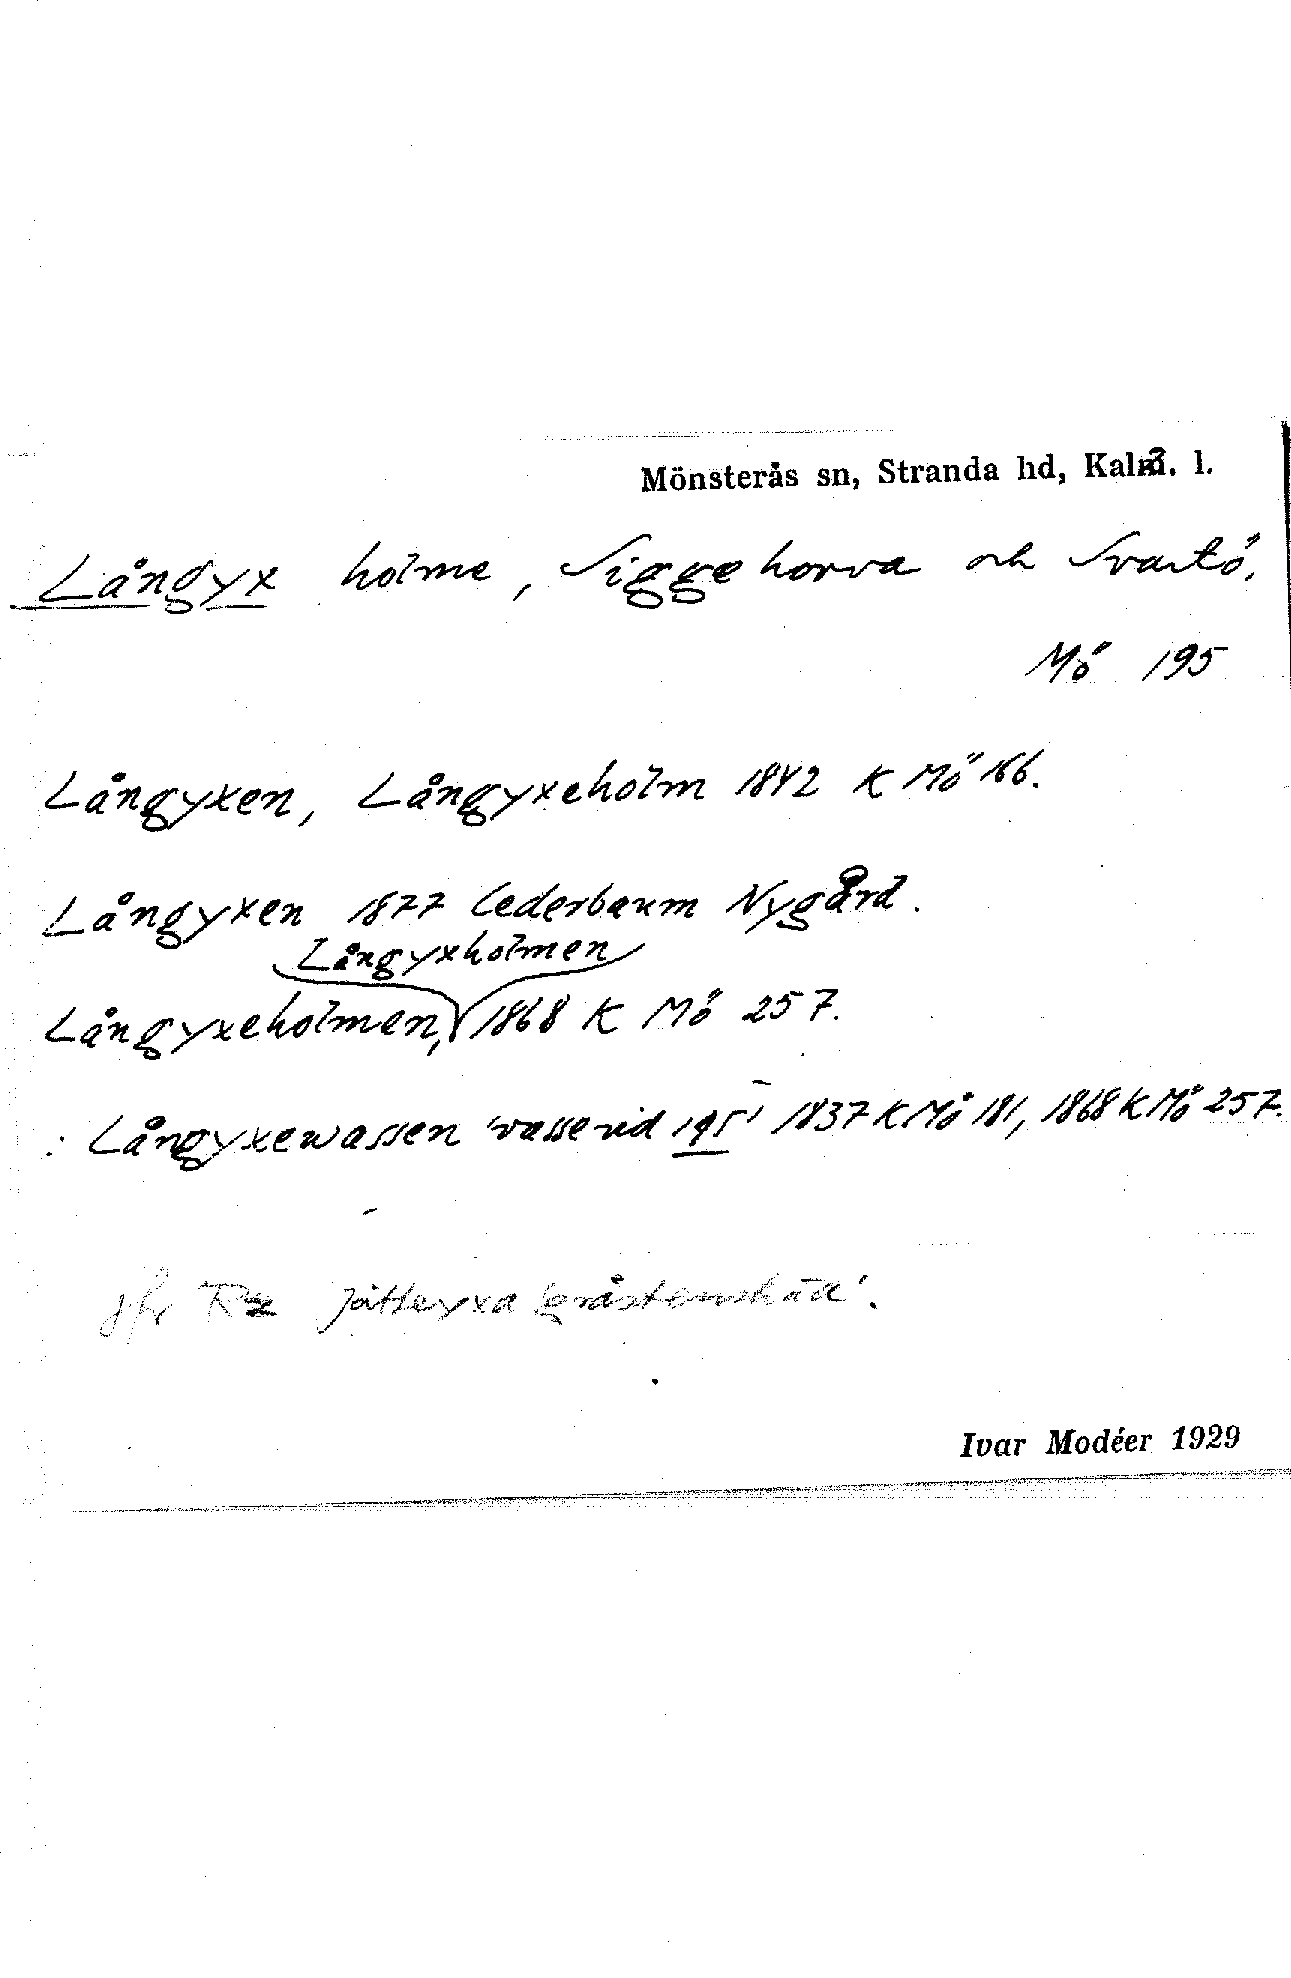 Mönsterås sn, Stranda hd, Kalm. l.
Långyx holme, Siggehorva och Svartö.
Mö 195
Långyxen, Långyxeholm 1842 K Mö 166.
Långyxen 1877 Cederbaum Nygård.
Långyxholmen
Långyxeholmen, 1868 K Mö 257.
: Långyxewassen 'vasse vid 195' 1837 K Mö 181, 1868 K Mö 257.
jfr Rz jätteyxa
Ivar Modéer 1929